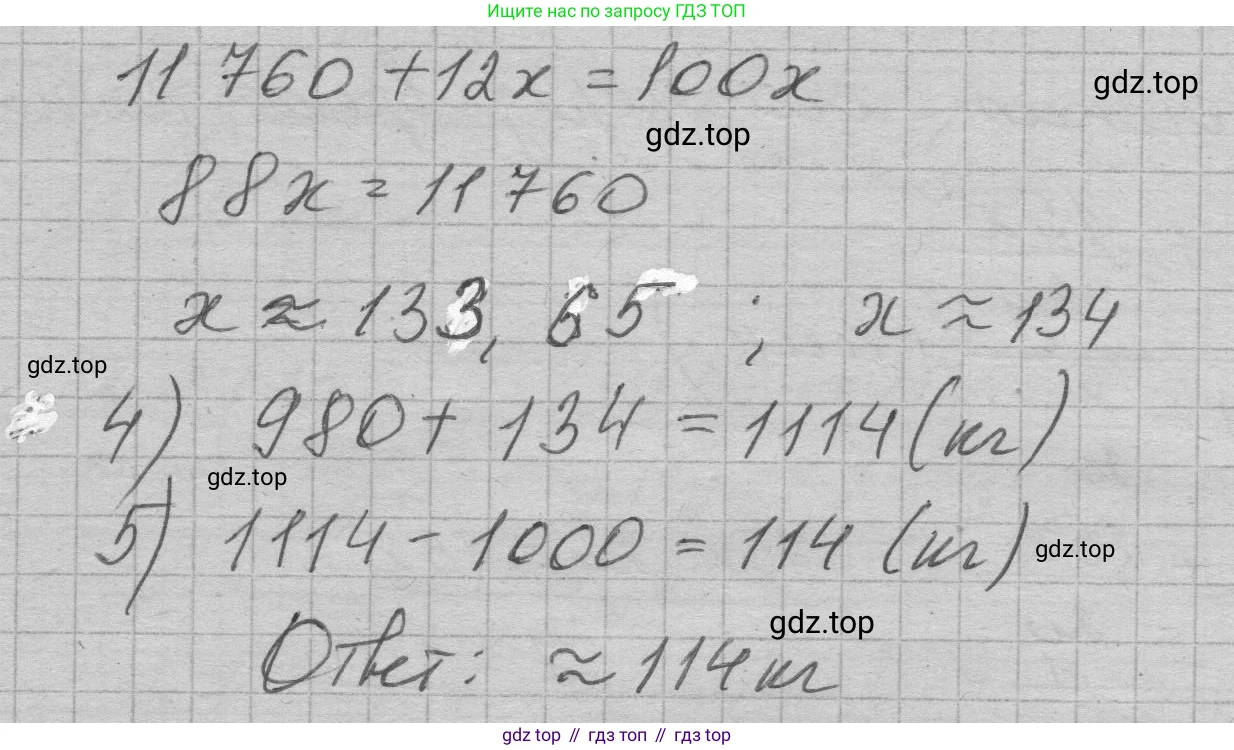 Ищите нас по запросу ГДЗ ТОП
11 760 + 12x = 100x
gdz.top
gdz.top
88x = 11 760
x ≈ 133, 65 ; x ≈ 134
gdz.top
4) 980 + 134 = 1114 (кг)
gdz.top
5) 1114 - 1000 = 114 (кг)
gdz.top
gdz.top
Ответ: ≈ 114 кг
gdz top // гдз топ // гдз top